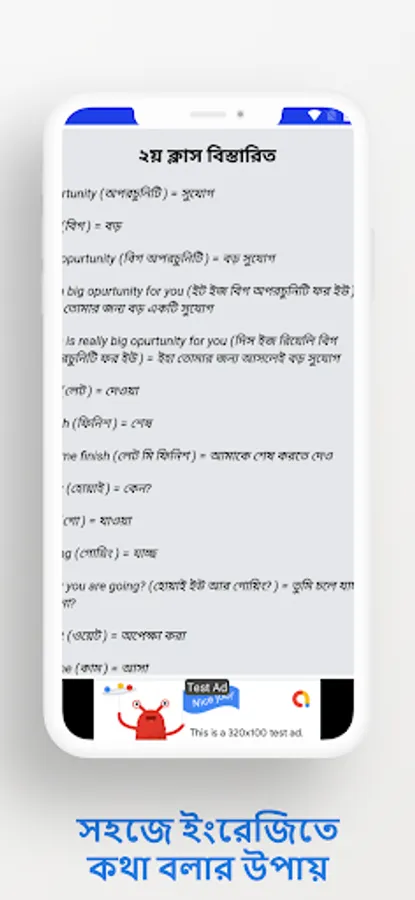 ২য় ক্লাস বিস্তারিত
rtunity (অপরচুনিটি) = সুযোগ
(বিগ) = বড়
opurtunity (বিগ অপরচুনিটি) = বড় সুযোগ
big opurtunity for you (ইট ইজ বিগ অপরচুনিটি ফর ইউ)
তোমার জন্য বড় একটি সুযোগ
is really big opurtunity for you (দিস ইজ রিয়েলি বিগ
রচুনিটি ফর ইউ) = ইহা তোমার জন্য আসলেই বড় সুযোগ
(লেট) = দেওয়া
h (ফিনিশ) = শেষ
me finish (লেট মি ফিনিশ) = আমাকে শেষ করতে দেও
(হোয়াই) = কেন?
(গো) = যাওয়া
ng (গোয়িং) = যাচ্ছ
you are going? (হোয়াই ইউ আর গোয়িং?) = তুমি চলে যা
(ওয়েট) = অপেক্ষা করা
ne (কাম) = আসা
Test Ad
Nice job!
This is a 320x100 test ad.
সহজে ইংরেজিতে
কথা বলার উপায়